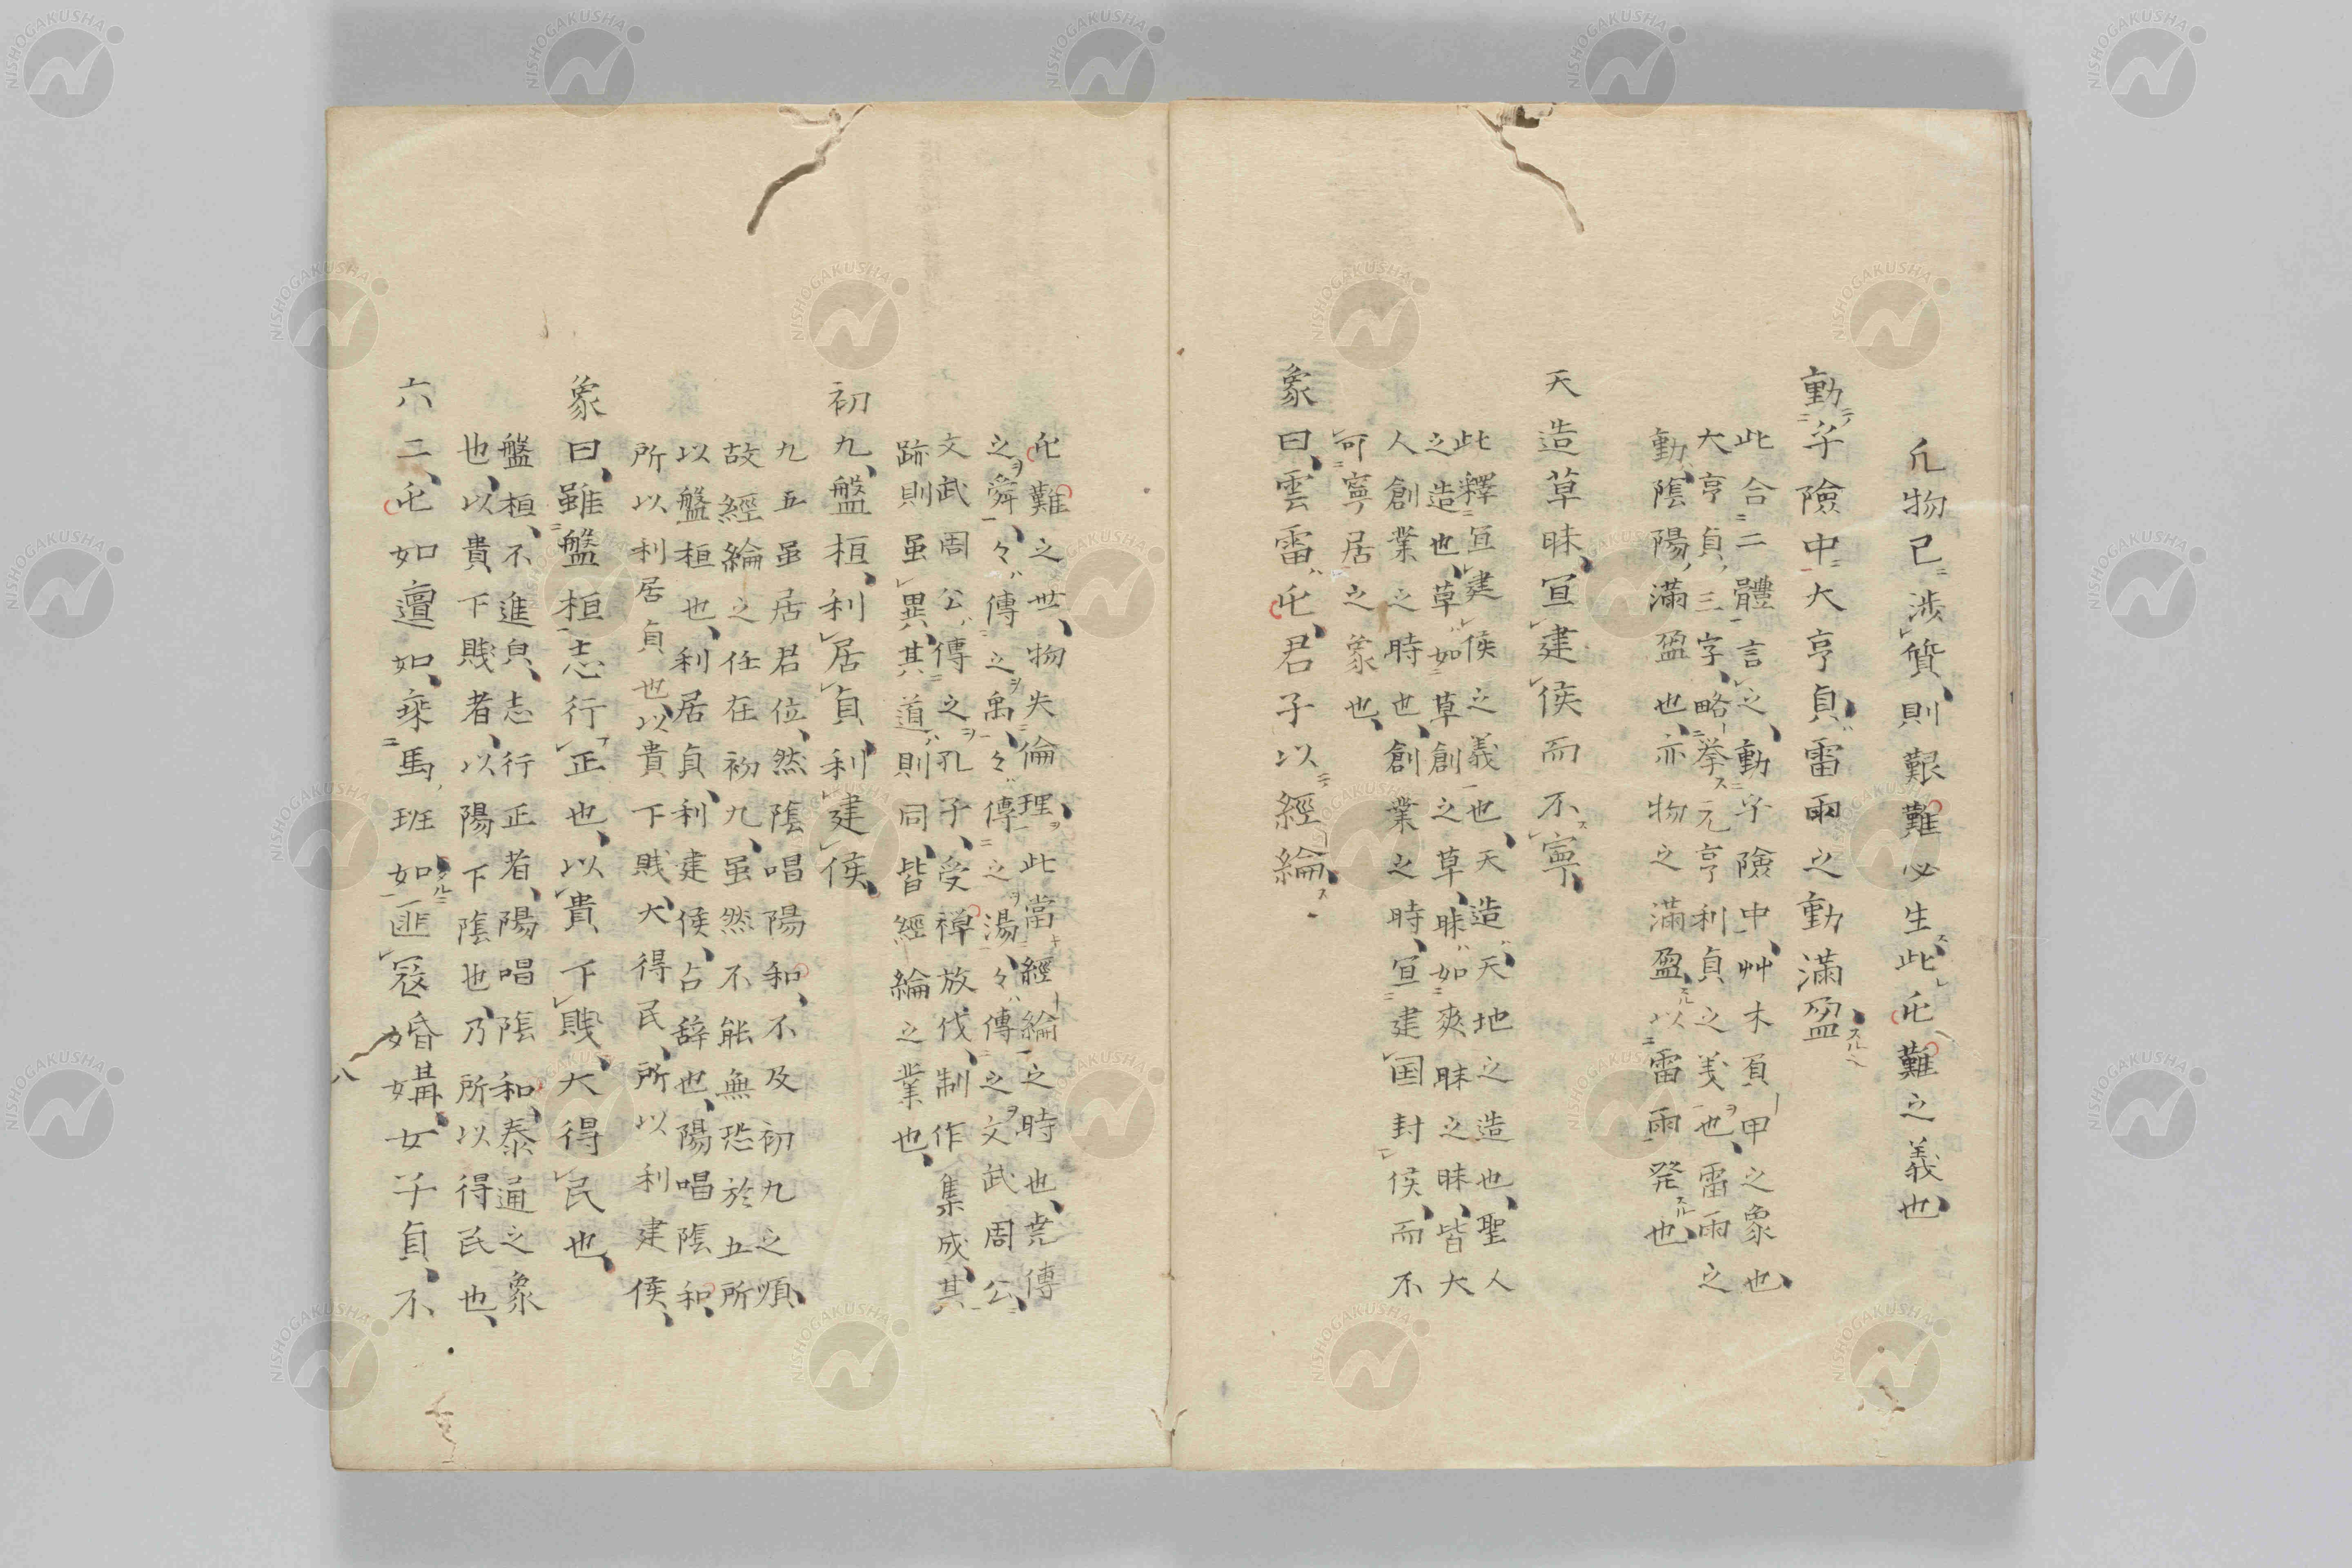 凢物已涉質、則艱難必生此屯難之義也、
動乎險中大亨貞、雷雨之動滿盈、
此合二體言之、動乎險中、艸木負甲之象也、
大亨貞、三字、略挙元亨利貞之義也、雷雨之
動、陰陽滿盈也、亦物之滿盈、以雷雨発也、
天造草昧、宜建侯而不寧、
此釋宜建侯之義也、天造、天地之造也、聖人
之造也、草如草創之草、昧如爽昧之昧、皆大
人創業之時也、創業之時、宜建国封侯、而不
可寧居之象也、
象曰、雲雷屯、君子以經綸、
屯難之世、物失倫理、此當經綸之時也、尭傳
之舜、々傳之禹、々傳之湯、々傳之文武周公、
文武周公傳之孔子、受禅放伐、制作集成、其
跡則虽異、其道則同、皆經綸之業也、
初九、盤桓、利居貞、利建侯、
九五虽居君位、然陰唱陽和、不及初九之順、
故經綸之任在初九、虽然不能無恐於五所
以盤桓也、利居貞、利建侯、占辞也、陽唱陰和、
所以利居貞也、以貴下賎、大得民、所以利建侯、
象曰、雖盤桓志行正也、以貴下賎、大得民也、
盤桓、不進皃、志行正者、陽唱陰和、泰通之象
也、以貴下賎者、以陽下陰也、乃所以得民也、
六二、屯如邅如、乗馬班如、匪冦婚媾、女子貞、不
八